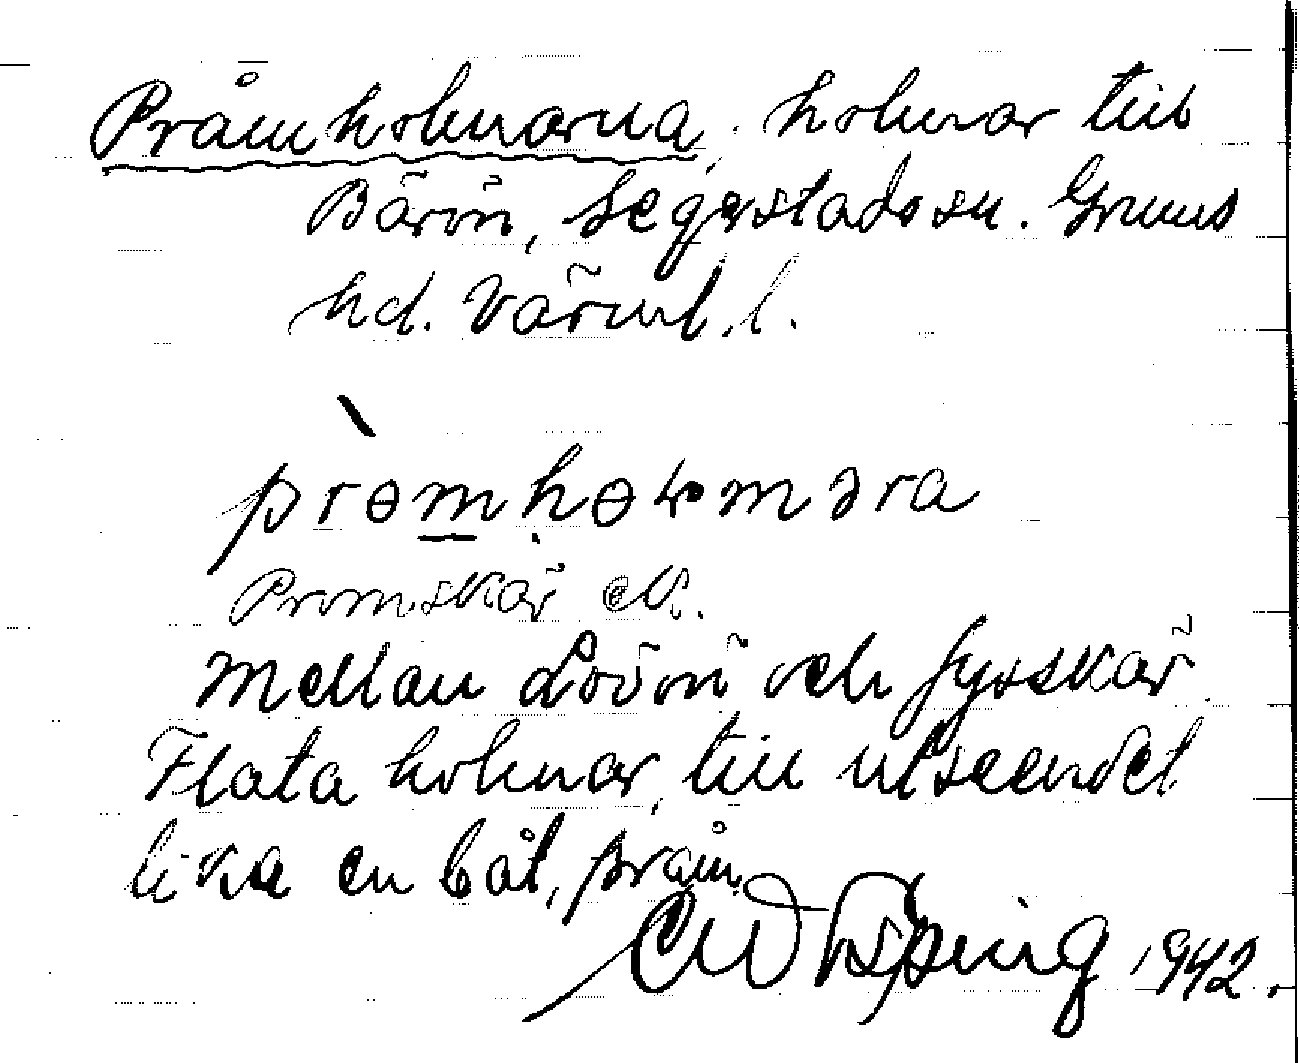 Pråmholmarna, holmar till
Bärön, Segerstads sn. Grums
hd. Värml. l.
Promskär ek.
Mellan Lövön och Fyrskär
Flata holmar, till utseendet
lika en båt, pråm.
1942.